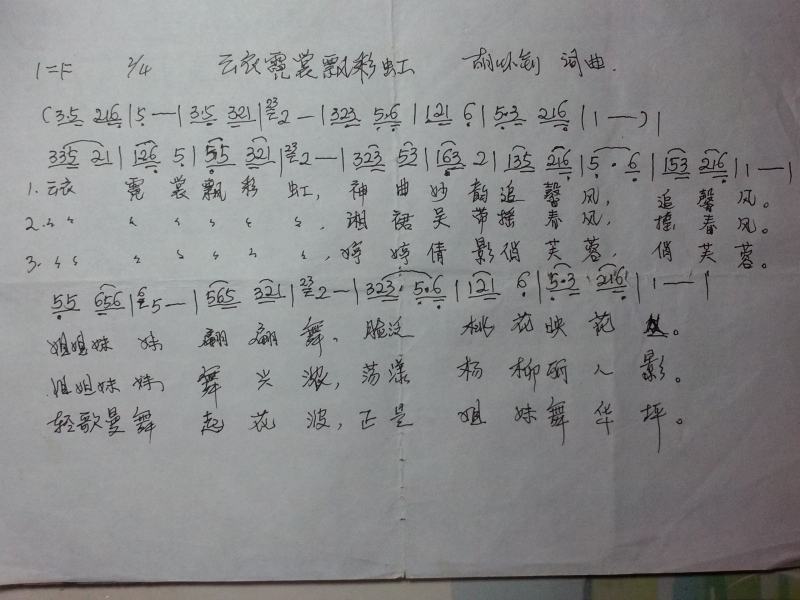 1=F 2/4 云衣霓裳飘彩虹 词曲.
(3.5 216|5—|3.5 321|23 2—|323 5.6|121 6|5.3 216|1—)|
335 21|126 5|55 321|23 2—|323 53|163 2|135 216|5.6|153 216|1—|
1. 云衣 霓裳飘彩虹,神曲妙韵追馨风,追馨风。
2. 〃 〃 〃 〃 〃 〃 〃,湘裙吴带摇春风,摇春风。
3. 〃 〃 〃 〃 〃 〃 〃,婷婷倩影俏芙蓉,俏芙蓉。
55 656|6 5—|565 321|23 2—|323 5.6|121 6|5.3 216|1—|
姐姐妹妹翩翩舞、脸泛桃花映花。
姐姐妹妹舞兴浓,荡漾杨柳丽人影。
轻歌曼舞起花波,正是姐妹舞华坪。